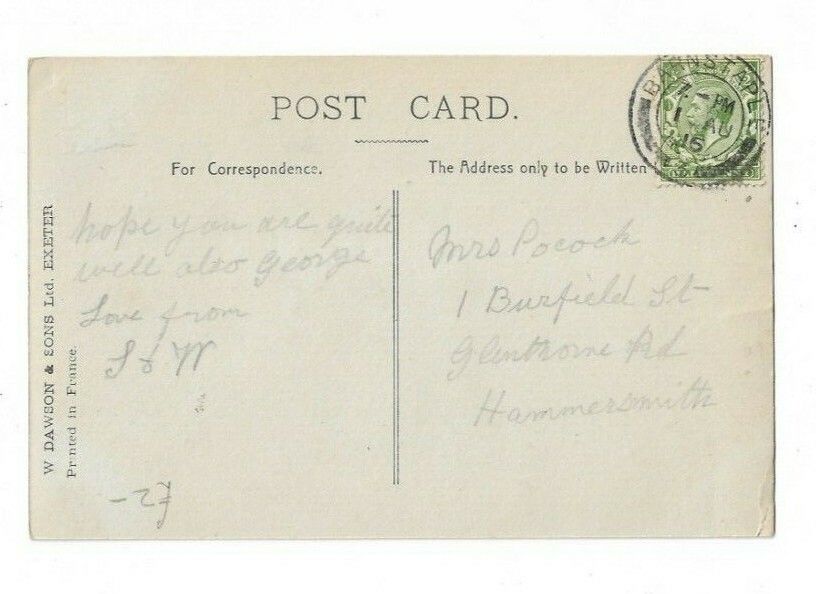 POST CARD.
For Correspondence.
The Address only to be Written
BARNSTAPLE
7 - PM
1 AU
16
hope you are quite
well also George
Love from
S & W
Mrs Pocock
1 Burfield St
Glenthorne Rd
Hammersmith
W DAWSON & SONS Ltd. EXETER
Printed in France.
£2-